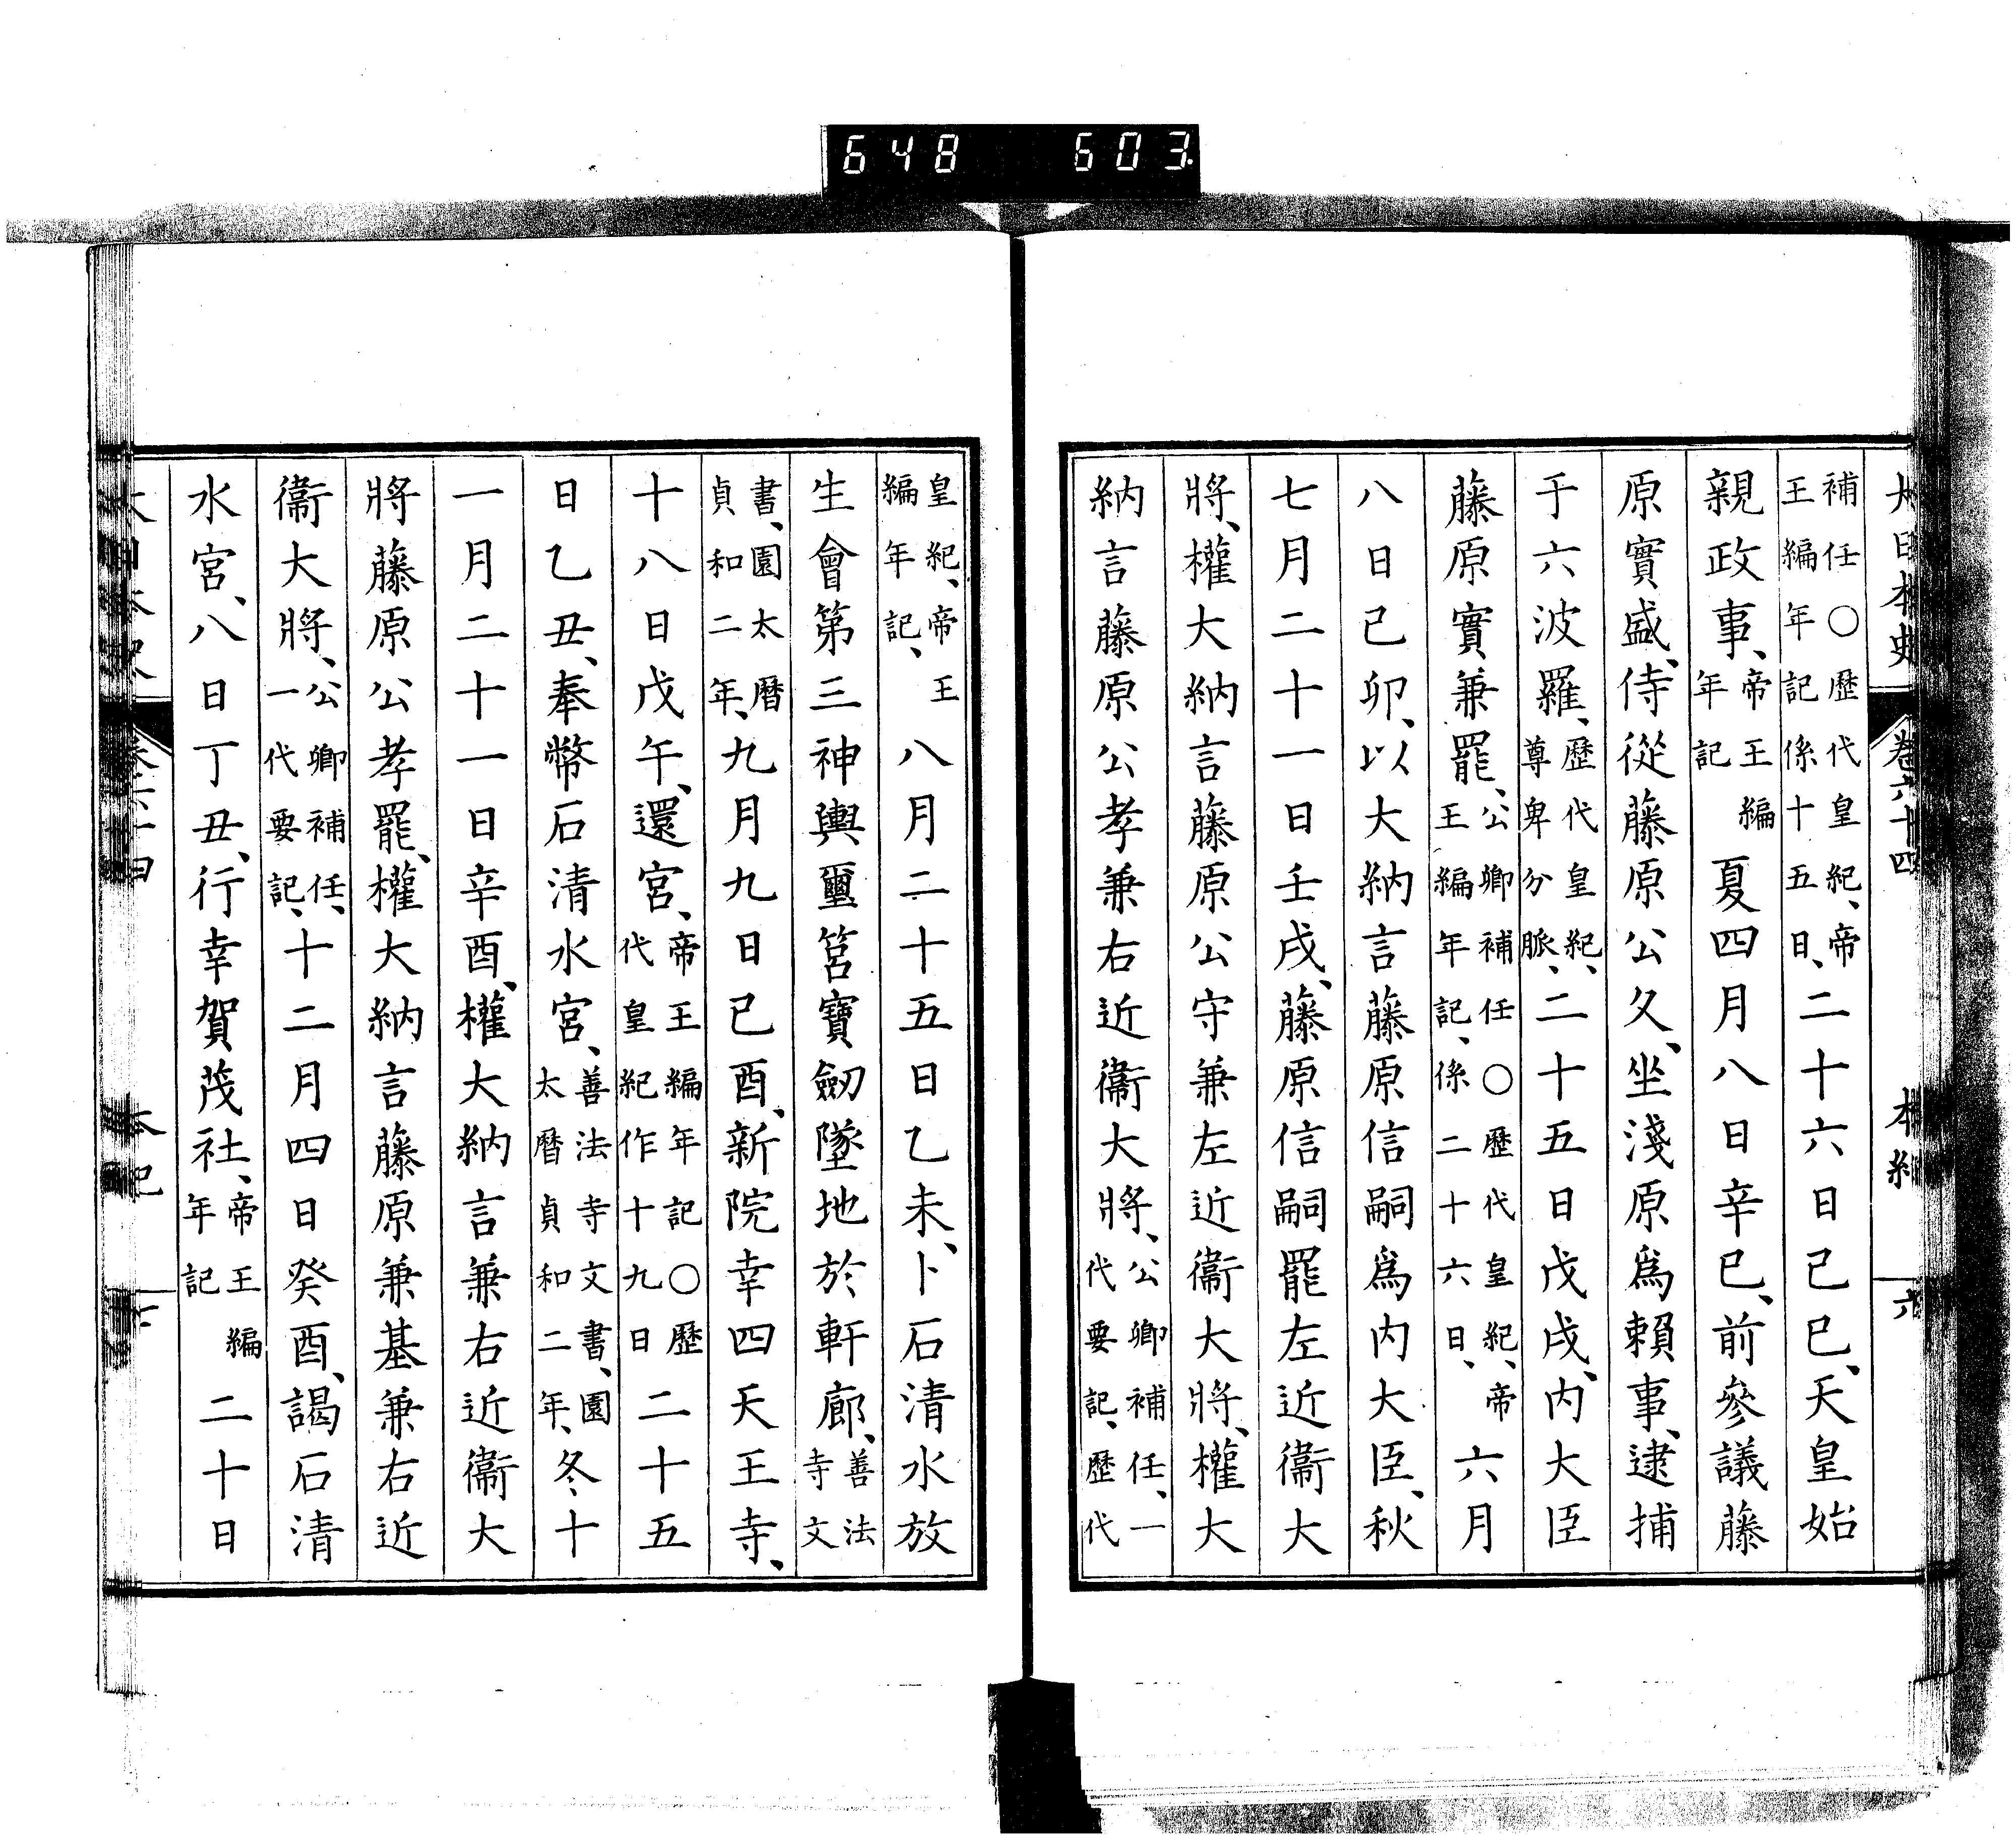 648 603
大日本史 卷六十四 本紀 六
補任○歷代皇紀、帝王編年記係十五日、二十六日己巳、天皇始
親政事、帝王編年記夏四月八日辛巳、前參議藤
原實盛、侍從藤原公久、坐淺原爲賴事、逮捕
于六波羅、歷代皇紀、尊卑分脈、二十五日戊戌、內大臣
藤原實兼罷、公卿補任○歷代皇紀、帝王編年記、係二十六日、六月
八日己卯、以大納言藤原信嗣爲內大臣、秋
七月二十一日壬戌、藤原信嗣罷左近衞大
將、權大納言藤原公守兼左近衞大將、權大
納言藤原公孝兼右近衞大將、公卿補任、一代要記、歷代
皇紀、帝王編年記、八月二十五日乙未、卜石清水放
生會第三神輿璽筥寶劒墜地於軒廊、善法寺文
書、園太曆貞和二年、九月九日己酉、新院幸四天王寺、
十八日戊午、還宮、帝王編年記○歷代皇紀作十九日二十五
日乙丑、奉幣石清水宮、善法寺文書、園太曆貞和二年、冬十
一月二十一日辛酉、權大納言兼右近衞大
將藤原公孝罷、權大納言藤原兼基兼右近
衞大將、公卿補任、一代要記、十二月四日癸酉、謁石清
水宮、八日丁丑、行幸賀茂社、帝王編年記二十日